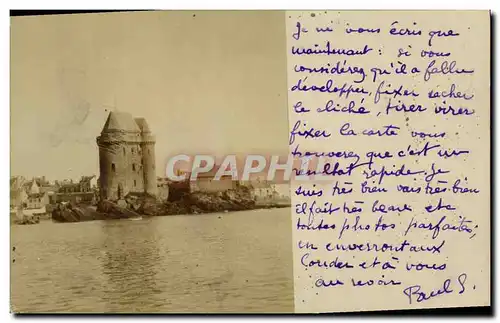 Je ne vous écris que
maintenant : si vous
considérez qu'il a fallu
développer, fixer sécher
le cliché, tirer virer
fixer la carte vous
trouverez que c'est un
résultat rapide. Je
suis très bien vais très bien
il fait très beau etc
toutes photos parfaites,
en enverront aux
et à vous
au revoir Paul S.
CPARAMA